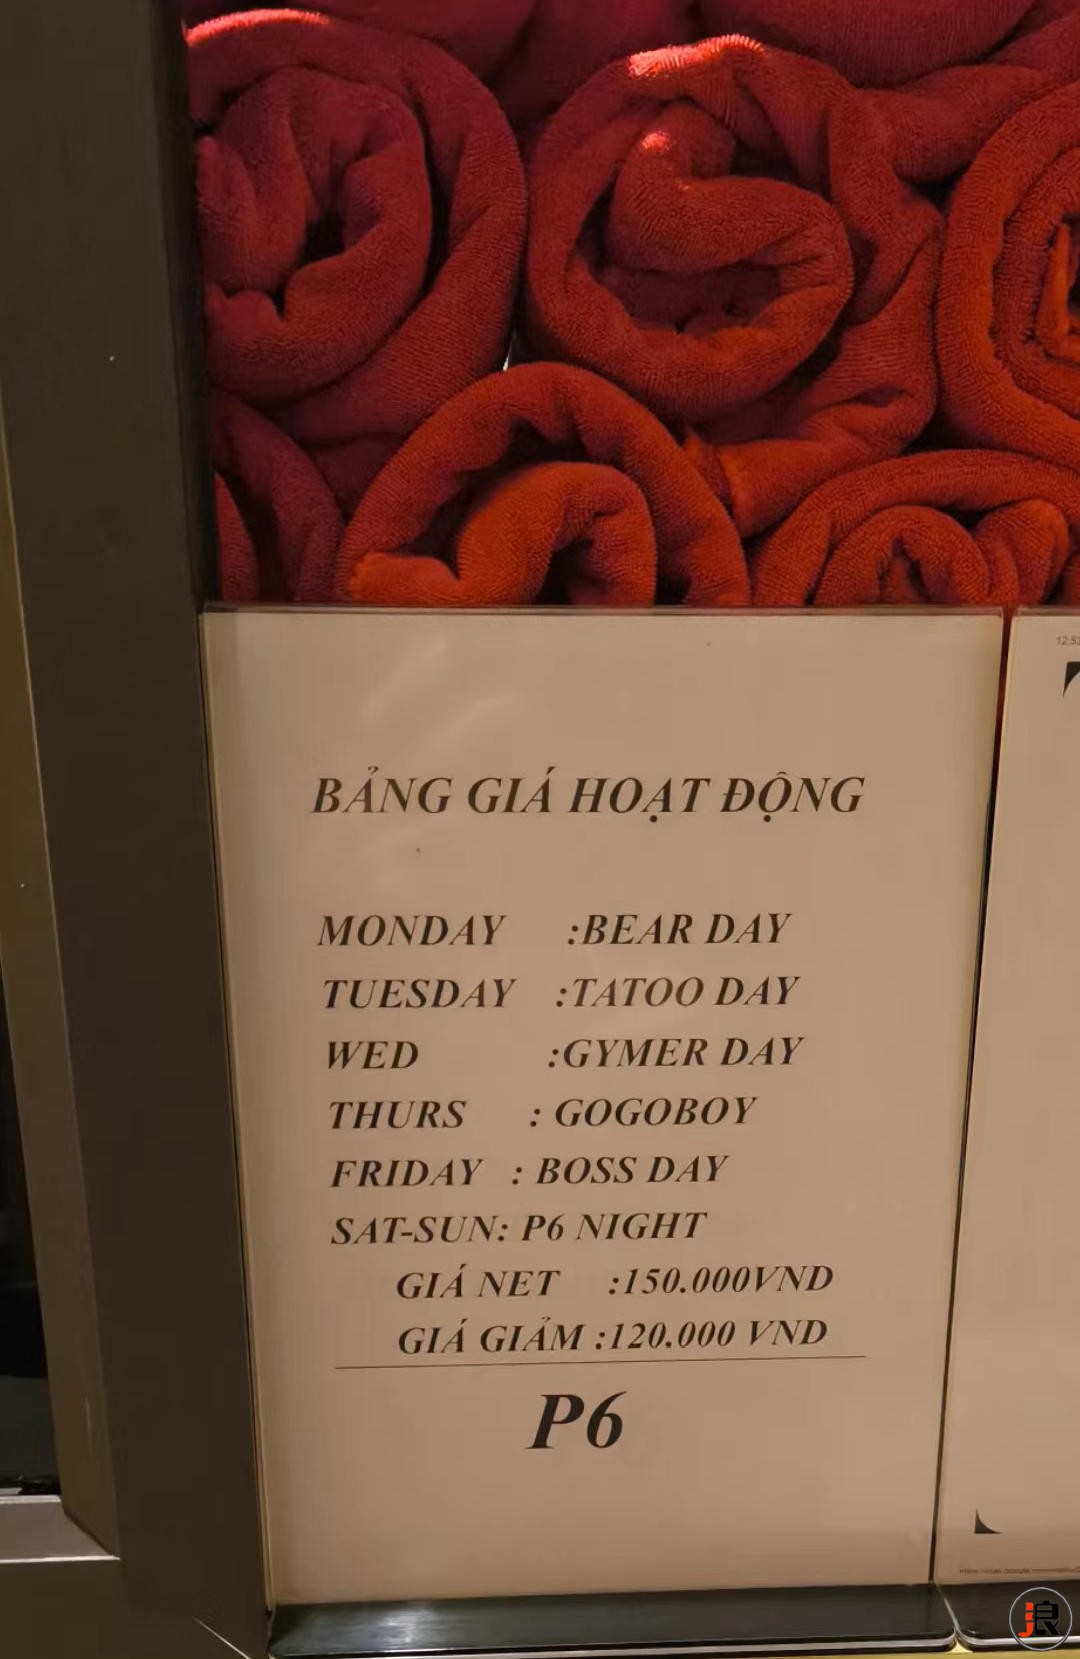 BẢNG GIÁ HOẠT ĐỘNG
MONDAY :BEAR DAY
TUESDAY :TATOO DAY
WED :GYMER DAY
THURS : GOGOBOY
FRIDAY : BOSS DAY
SAT-SUN: P6 NIGHT
GIÁ NET :150.000VND
GIÁ GIẢM :120.000 VND
P6